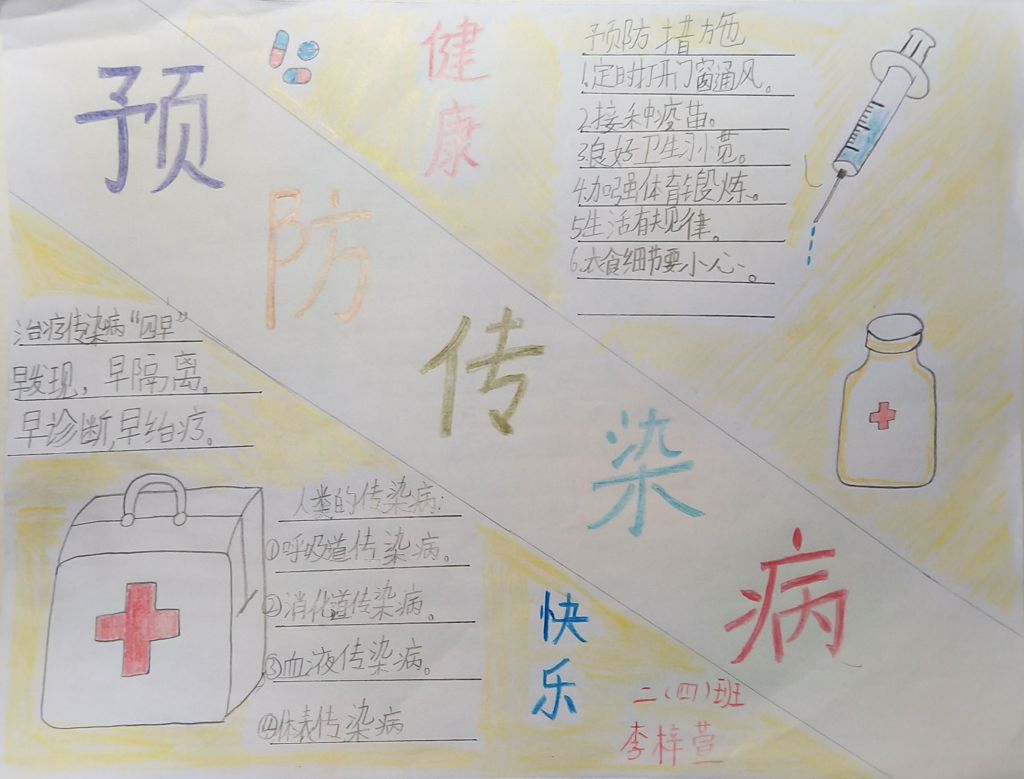 预防传染病
健康
预防措施
1.定时打开门窗通风。
2.接种疫苗。
3.良好卫生习惯。
4.加强体育锻炼。
5生活有规律。
6.衣食细节要小心。
治疗传染病“四早”
早发现，早隔离。
早诊断,早治疗。
人类的传染病：
①呼吸道传染病。
②消化道传染病。
③血液传染病。
④体表传染病
快乐
二（四）班
李梓萱